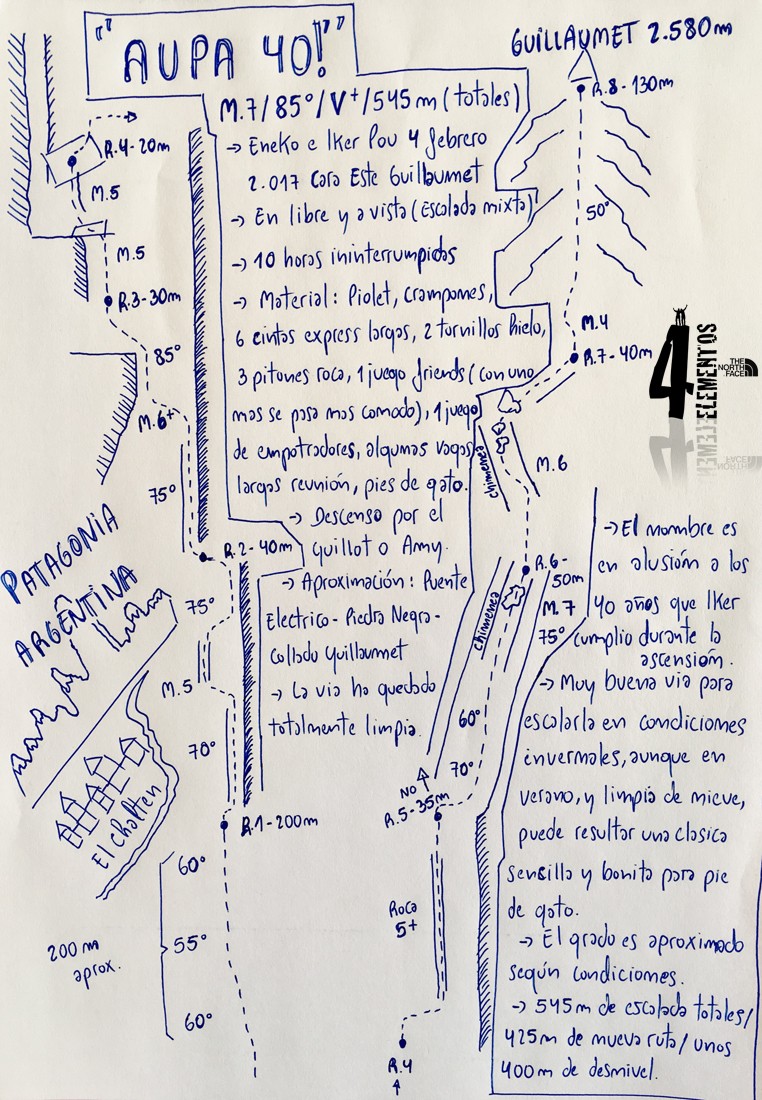 "AUPA 40!"
M.7/85°/V+/545m (totales)
→ Eneko e Iker Pou 4 febrero
2.017 Cara Este Guillaumet
→ En libre y a vista (Escalada mixta)
→ 10 horas ininterrumpidas
→ Material: Piolet, Crampones,
6 cintas express largas, 2 tornillos hielo,
3 pitones roca, 1 juego friends (con uno
mas se pasa mas comodo), 1 juego
de empotradores, algunas vagas
largas reunión, pies de gato.
→ Descenso por el
Guillot o Amy.
→ Aproximación: Puente
Electrico - Piedra Negra -
Collado Guillaumet
→ La via ha quedado
totalmente limpia.
R.4-20m
M.5
M.5
R.3-30m
85°
M.6+
75°
R.2-40m
75°
M.5
70°
R.1-200m
60°
55°
60°
200 m
aprox.
PATAGONIA
ARGENTINA
El Chalten
GUILLAUMET 2.580m
R.8-130m
50°
M.4
R.7-40m
chimenea
M.6
R.6-
50m
M.7
75°
chimenea
60°
70°
NO
R.5-35m
Roca
5+
R.4
4 ELEMENTOS
THE
NORTH
FACE
→ El nombre es
en alusión a los
40 años que Iker
cumplio durante la
ascensión.
→ Muy buena via para
escalarla en condiciones
invernales, aunque en
verano, y limpia de nieve,
puede resultar una clasica
sencilla y bonita para pie
de gato.
→ El grado es aproximado
según condiciones.
→ 545m de escalada totales/
425m de nueva ruta/ unos
400m de desnivel.